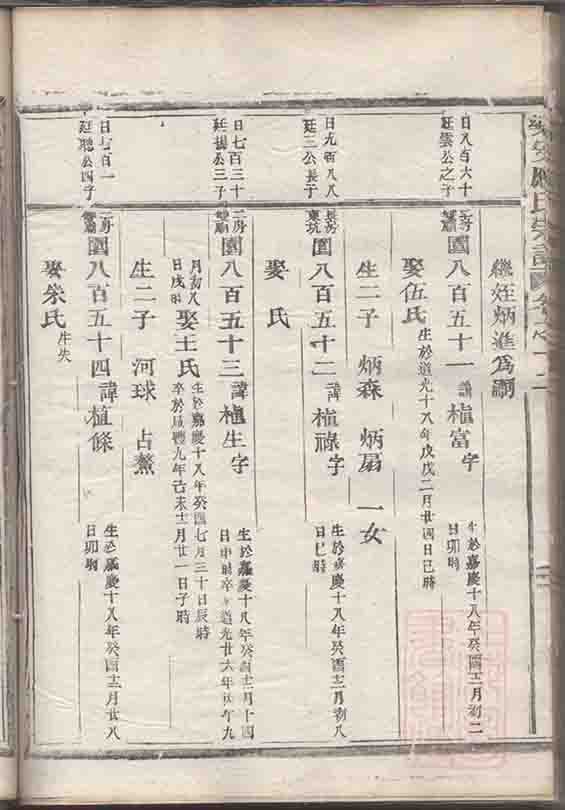 繼姪炳進為嗣
日八百六十
廷雲公之子
園八百五十一 諱植富字
生於嘉慶十八年癸酉十一月初二
日卯時
娶伍氏 生於道光十八年戊戌二月廿四日巳時
生二子 炳森 炳扇 一女
日九百八八
廷三公長子
長房
東坑
園八百五十二 諱植祿字
生於嘉慶十八年癸酉十二月初八
日巳時
娶 氏
日七百三十
廷揚公三子
二房
園八百五十三 諱植生字
生於嘉慶十八年癸酉十二月十四
日申時卒於道光廿六年丙午九
月初八
日戌時
娶王氏 生於嘉慶十八年癸酉七月三十日辰時
卒於咸豐九年己未十二月廿一日子時
生二子 河球 占鰲
日七百一
廷聰公四子
二房
園八百五十四 諱植條
生於嘉慶十八年癸酉十二月廿八
日卯時
娶朱氏 生失